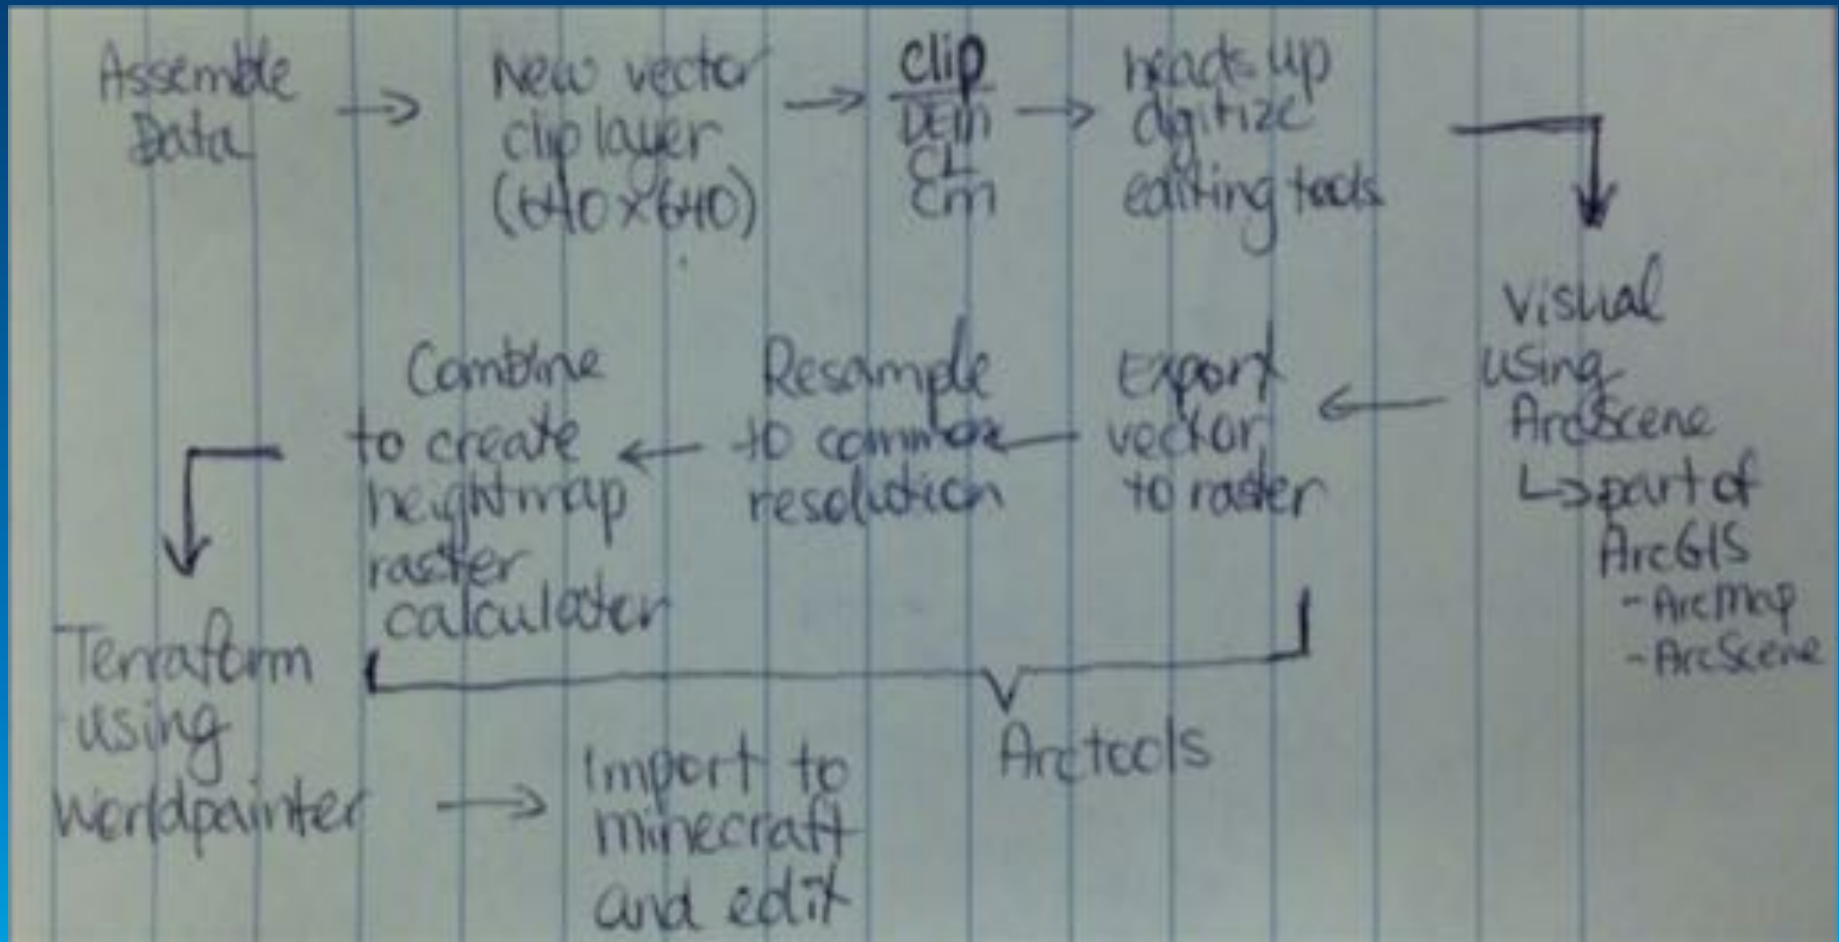 Assemble
Data
New vector
clip layer
(640x640)
clip
DEM
CL
Cm
heads up
digitize
editing tools
visual
using
ArcScene
↳ part of
ArcGIS
- ArcMap
- ArcScene
Export
vector
to raster
Resample
to common
resolution
Combine
to create
heightmap
raster
calculater
Arctools
Terraform
using
Worldpainter
Import to
minecraft
and edit